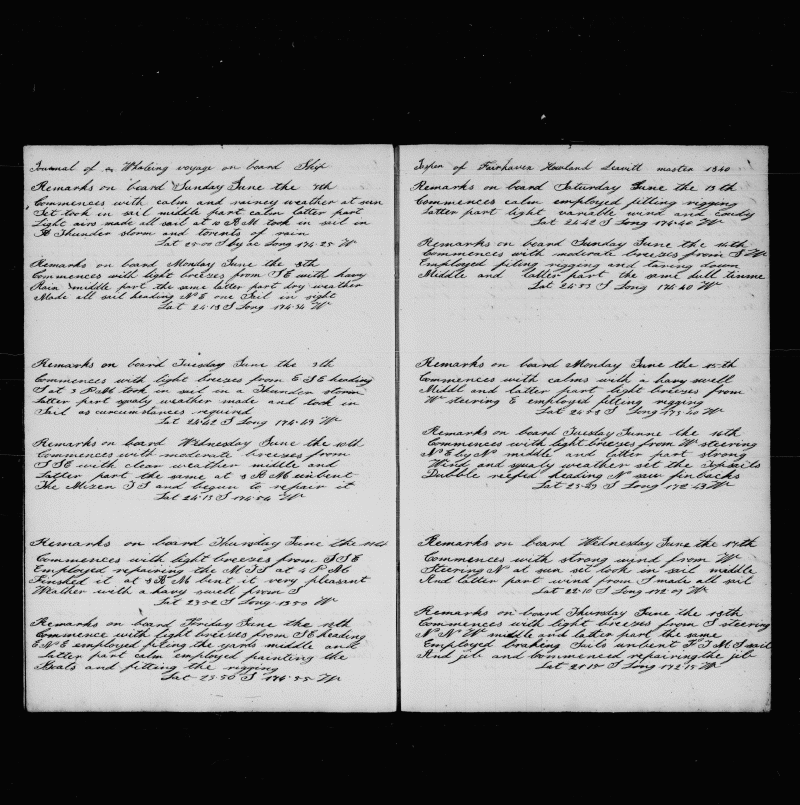 Journal of a Whaleing voyage on board Ship
Remarks on board Sunday June the 7th
Commences with calm and rainey weather at sun
Set took in sail middle part calm latter part
Light airs made all sail at 10 A M took in sail in
A Thunder storm and torents of rain
Lat 25-00 S by ac Long 174-25 W
Remarks on board Monday June the 8th
Commences with light breezes from S E with havy
Rain middle part the same latter part dry weather
Made all sail heading N E one Sail in sight
Lat 24-18 S Long 174-34 W
Remarks on board Tuesday June the 9th
Commences with light breezes from E S E heading
S at 3 P M took in sail in a Thunder storm
latter part squaly weather made and took in
Sail as curcumstances required
Lat 24-42 S Long 174-49 W
Remarks on board Wednesday June the 10th
Commences with moderate breezes from
S S E with clear weather middle and
Latter part the same at 8 A M unbent
The Mizen T S and begun to repair it
Lat 24-13 S 174-54 W
Remarks on board Thursday June the 11th
Commences with light breezes from S S E
Employed repairing the M T S at 4 P M
Finshed it at 8 A M bent it very pleasant
Weather with a havy swell from S
Lat 23-52 S Long W
Remarks on board Friday June the 12th
Commence with light breezes from S E heading
E N E employed fiting the yards middle and
latter part calm employed painting the
Boats and fitting the rigging
Lat 23-50 S 174-55 W
Jasper of Fairhaven Howland Leavitt master 1840
Remarks on board Saturday June the 13th
Commences calm employed fitting rigging
latter part light variable wind and coudy
Lat 24-42 S Long 174-40 W
Remarks on board Sunday June the 14th
Commences with moderate breezes from S W
Employed fiting rigging and taring down
Middle and latter part the same dull times
Lat 24-53 S Long 174-40 W
Remarks on board Monday June the 15th
Commences with calms with a havy swell
Middl and latter part light breezes from
W steering E employed fitting rigging
Lat S Long 173-40 W
Remarks on board Tuesday Junne the 16th
Commences with light breezes from W steering
N E by N middle and latter part strong
Wind and squaly weather set the Topsails
Dubble reefed heading N saw finbacks
Lat 23-49 S Long 172-43 W
Remarks on board Wednesday June the 17th
Commences with strong wind from W
Steering N at sun set took in sail middle
And latter part wind from S made all sail
Lat 22-10 S Long 172-09 W
Remarks on board Thursday June the 18th
Commences with light breezes from S steering
N N W middle and latter part the same
Employed brakeng Sails unbent F T M S sail
And jib and commenced repairing the jib
Lat S Long 172-15 W